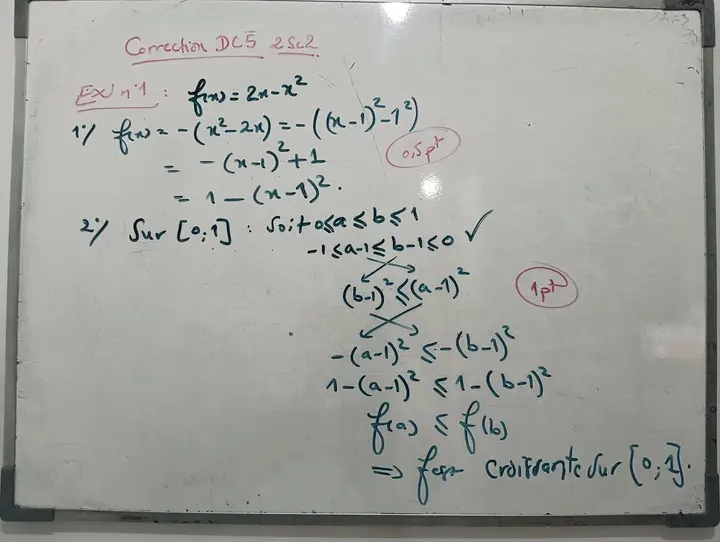 Correction DC5 2Sc2
EX n°1 : f(x) = 2x - x²
1°/ f(x) = -(x² - 2x) = -((x-1)² - 1²)
= -(x-1)² + 1
0,5pt
= 1 - (x-1)².
2°/ Sur [0;1] : Soit 0 ≤ a ≤ b ≤ 1
-1 ≤ a-1 ≤ b-1 ≤ 0 ✓
(b-1)² ≤ (a-1)²
1pt
-(a-1)² ≤ -(b-1)²
1-(a-1)² ≤ 1-(b-1)²
f(a) ≤ f(b)
⇒ f est croissante sur [0;1].